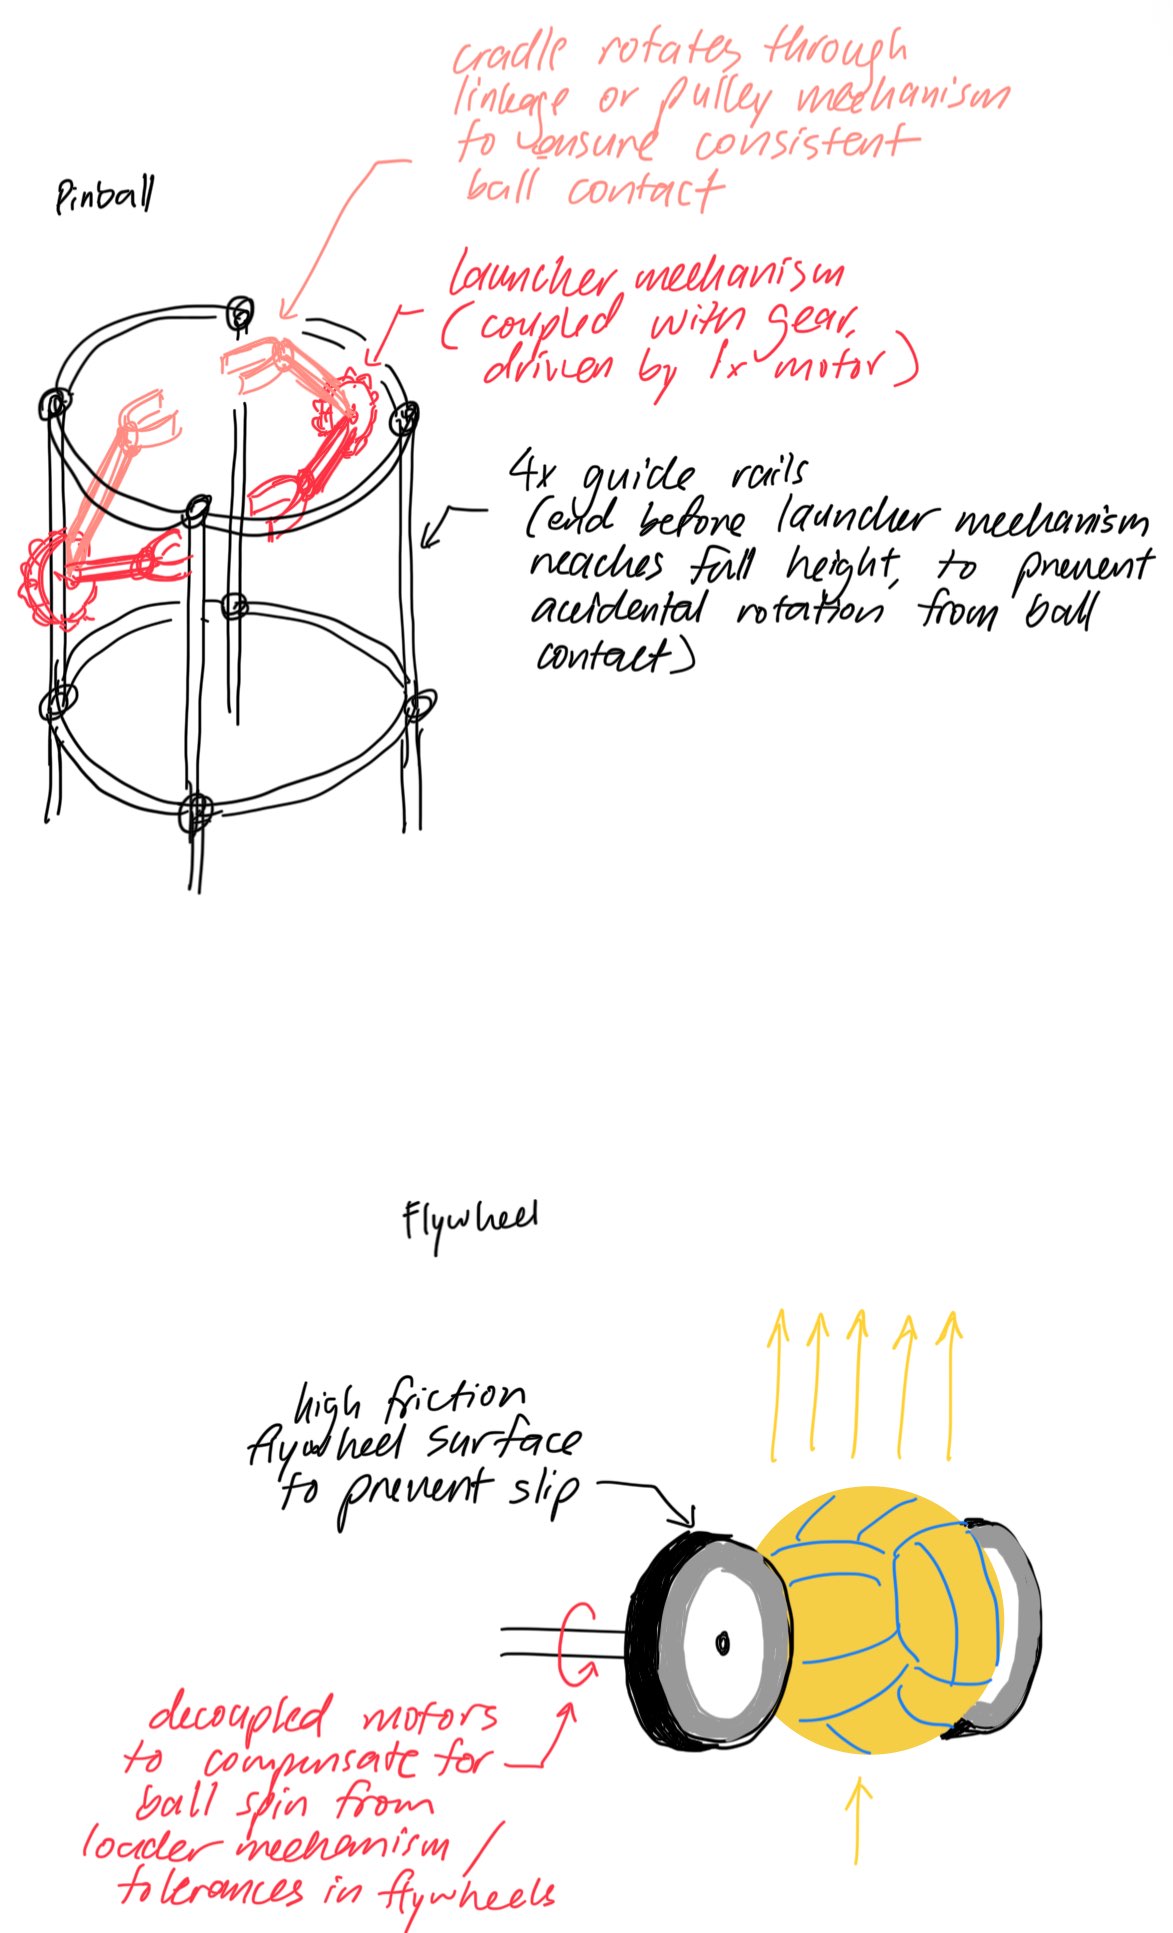 cradle rotates through
linkage or pulley mechanism
to ensure consistent
ball contact
Pinball
launcher mechanism
(coupled with gear,
driven by 1x motor)
4x guide rails
(end before launcher mechanism
reaches full height, to prevent
accidental rotation from ball
contact)
Flywheel
high friction
flywheel surface
to prevent slip
decoupled motors
to compensate for
ball spin from
loader mechanism /
tolerances in flywheels